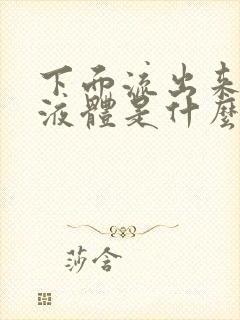 下面流出来
液體是什麼
莎含